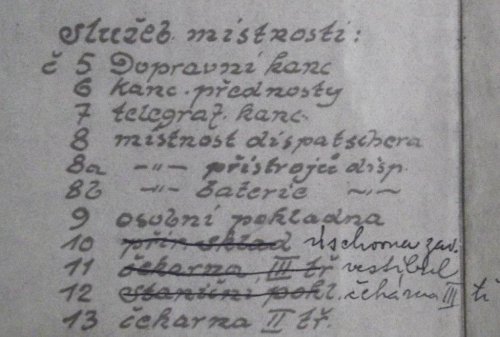 služeb. místnosti:
č 5 Dopravní kanc
6 kanc. přednosty
7 telegraf. kanc.
8 místnost dispatschera
8a -"- přístrojů disp.
8b -"- baterie -"-
9 osobní pokladna
10 přír. sklad úschovna zav.
11 čekárna III tř vestibul
12 staniční pokl. čekárna III tř
13 čekárna II tř.